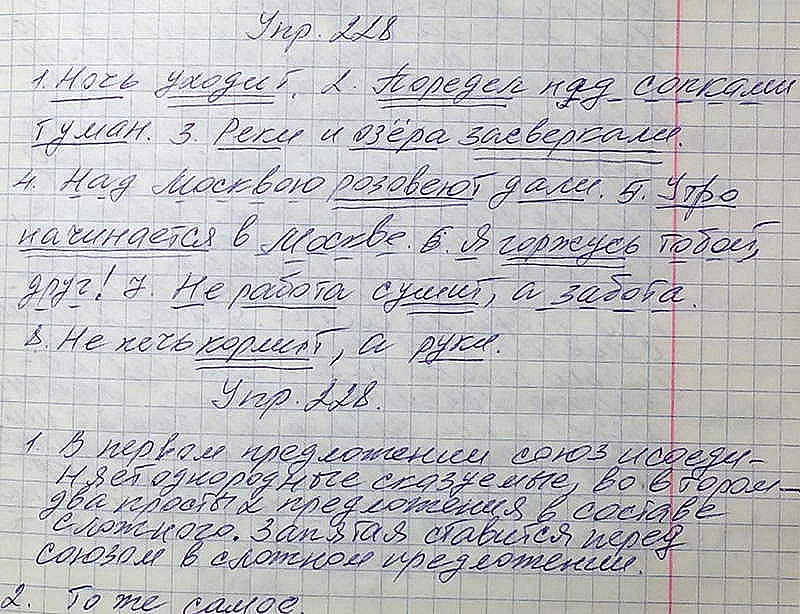 Упр. 228
1. Ночь уходит. 2. Поредел над сопками
туман. 3. Реки и озёра засверкали.
4. Над Москвою розовеют дали. 5. Утро
начинается в Москве. 6. Я горжусь тобой,
друг! 7. Не работа сушит, а забота.
8. Не печь кормит, а руки.
Упр. 228.
1. В первом предложении союз и соеди-
няет однородные сказуемые, во втором –
два простых предложения в составе
сложного. Запятая ставится перед
союзом в сложном предложении.
2. То же самое.